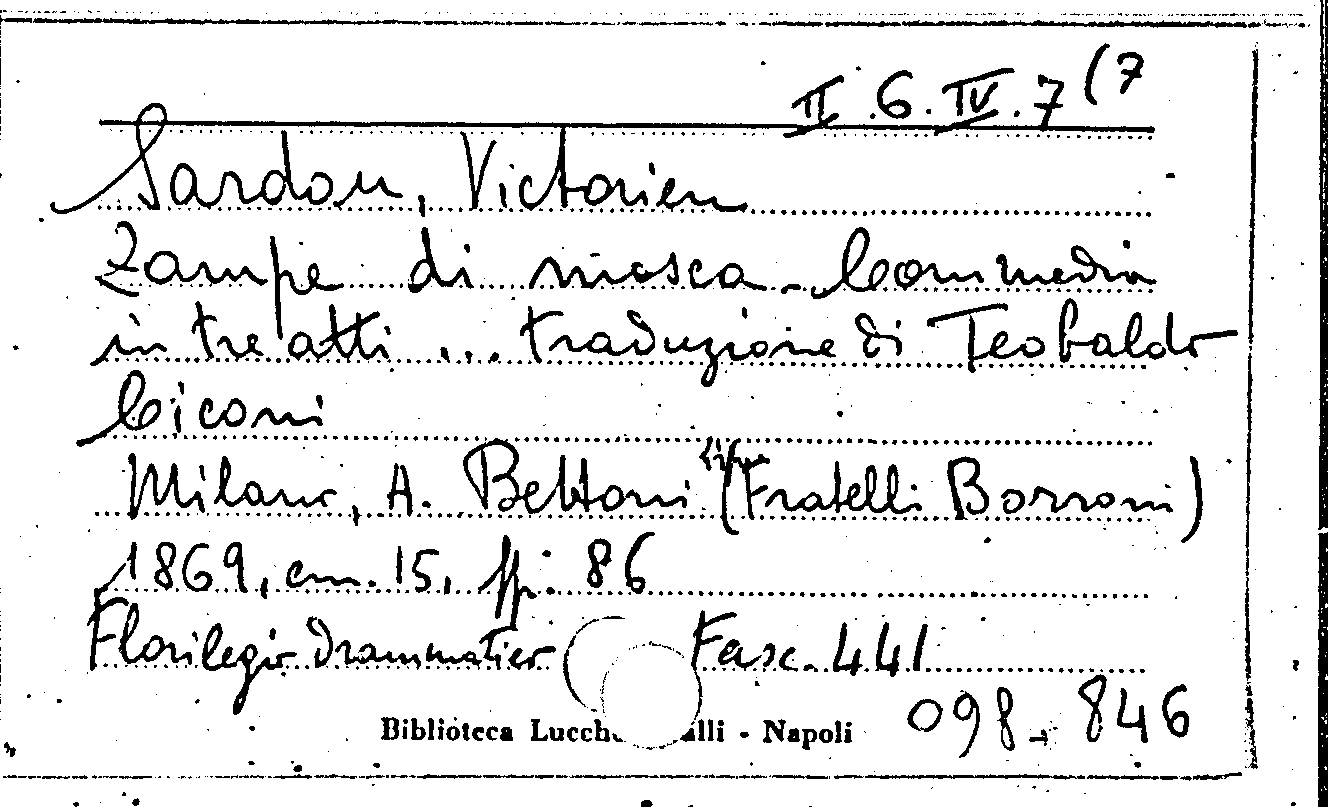 II.6.IV.7(7
Sardou, Victorien
Zampe di mosca - Commedia
in tre atti ... traduzione di Teobaldo
Ciconi
Milano, A. Bettoni (Fratelli Borroni)
1869, cm. 15, pp. 86
Florilegio Drammatico Fasc. 441
098-846
Biblioteca Lucch alli - Napoli